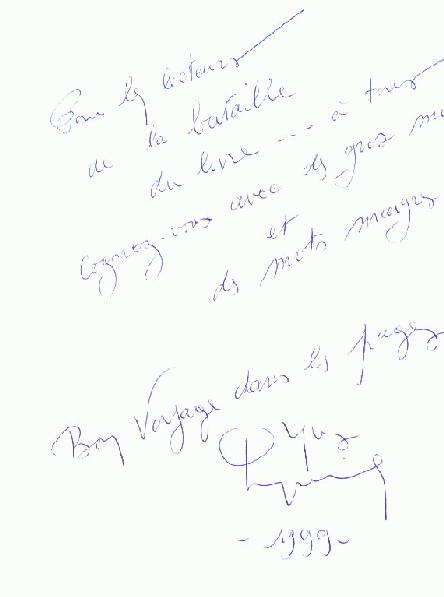 Pour les lecteurs
de la bataille
du livre --- à tous
Cognez-vous avec des gros mo
et
des mots maigres
Bon Voyage dans les pages
- 1999 -